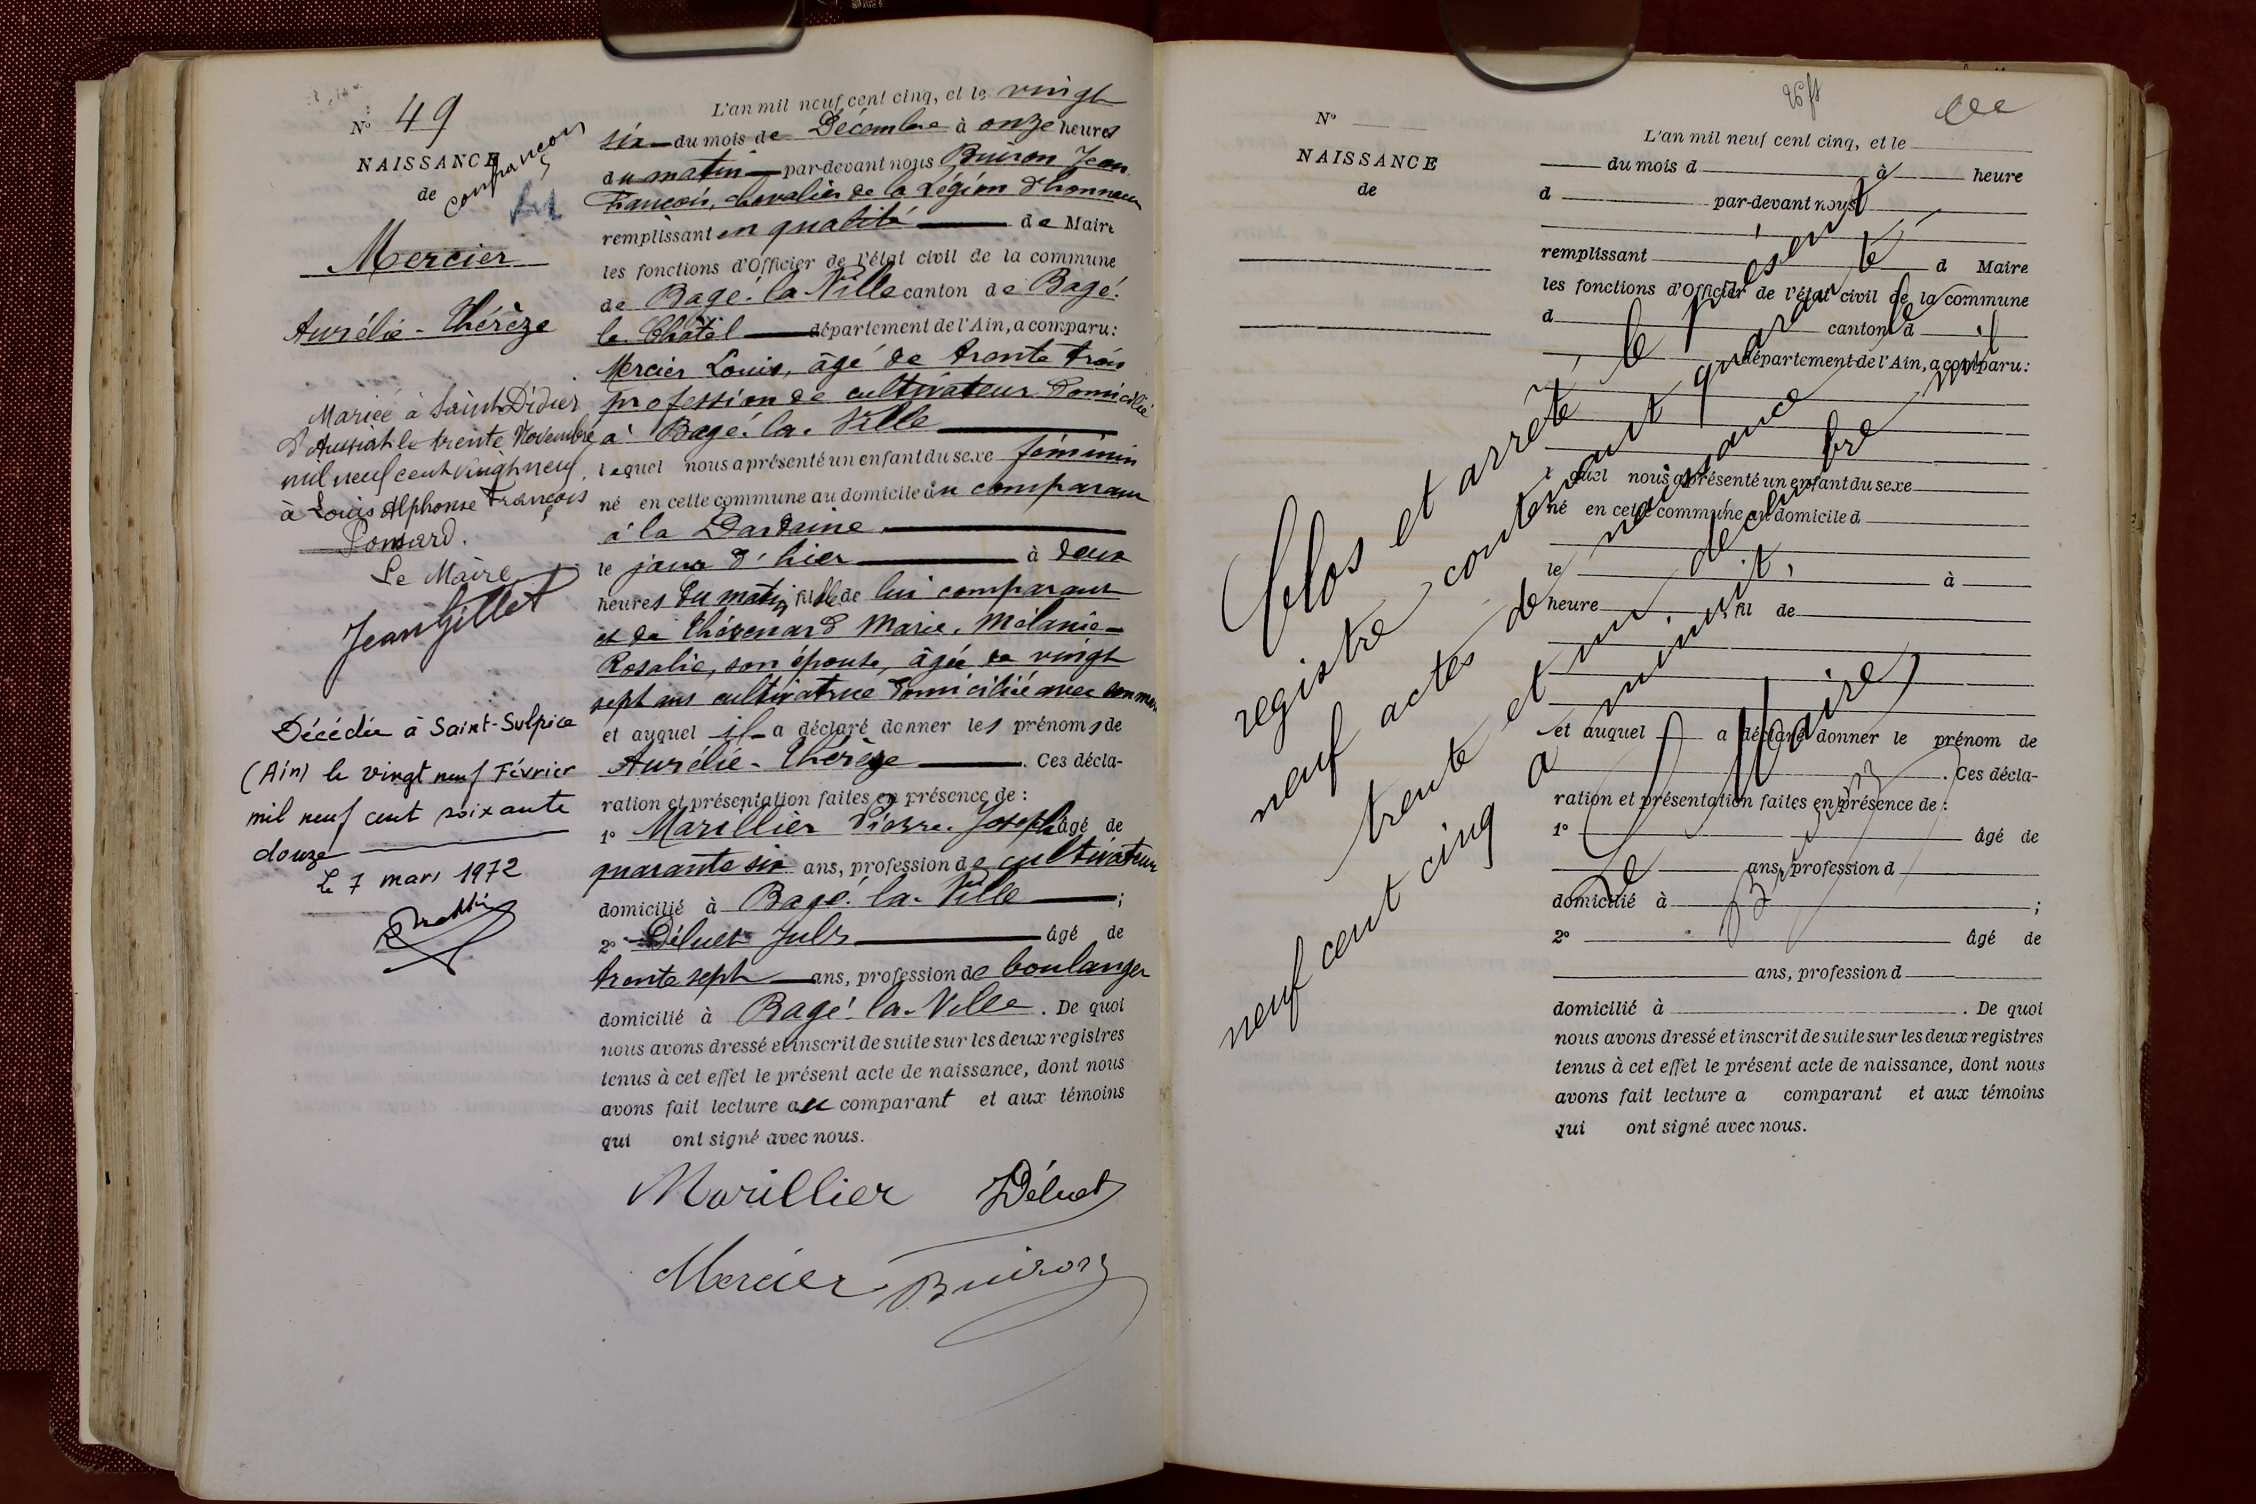 N° 49
NAISSANCE
de
Confrançon
Mercier
Aurélie-Thérèze
Mariée à Saint Didier
d'Aussiat le trente Novembre
mil neuf cent vingt neuf
à Louis Alphonse François
Ponsard.
Le Maire
Jean Gillet
Décédée à Saint-Sulpice
(Ain) le vingt neuf Février
mil neuf cent soixante
douze
Le 7 mars 1972
L'an mil neuf cent cinq, et le vingt
six du mois de Décembre à onze heures
du matin par-devant nous Buiron Jean
François, chevalier de la Légion d'honneur
remplissant en qualité de Maire
les fonctions d'Officier de l'état civil de la commune
de Bagé-la-Ville canton de Bagé-
le Châtel département de l'Ain, a comparu:
Mercier Louis, âgé de trente trois
profession de cultivateur domicilié
à Bagé-la-Ville
lequel nous a présenté un enfant du sexe féminin
né en cette commune au domicile du comparant
à la Dardaine
le jour d'hier à deux
heures du matin fille de lui comparant
et de Thévenard Marie-Mélanie-
Rosalie, son épouse, âgée de vingt
sept ans cultivatrice domiciliée avec son mari
et auquel il a déclaré donner les prénoms de
Aurélie-Thérèze. Ces décla-
ration et présentation faites en présence de:
1° Marillier Pierre-Joseph âgé de
quarante six ans, profession de cultivateur
domicilié à Bagé-la-Ville;
2° Déluet Jules âgé de
trente sept ans, profession de boulanger
domicilié à Bagé-la-Ville. De quoi
nous avons dressé et inscrit de suite sur les deux registres
tenus à cet effet le présent acte de naissance, dont nous
avons fait lecture au comparant et aux témoins
qui ont signé avec nous.
Marillier Déluet
Mercier Buiron
N°
NAISSANCE
de
L'an mil neuf cent cinq, et le
du mois d à heure
d par-devant nous
remplissant d Maire
les fonctions d'Officier de l'état civil de la commune
d canton d
département de l'Ain, a comparu:
l quel nous a présenté un enfant du sexe
né en cette commune au domicile d
le à
heure fil de
et auquel a déclaré donner le prénom de
. Ces décla-
ration et présentation faites en présence de:
1° âgé de
ans, profession d
domicilié à ;
2° âgé de
ans, profession d
domicilié à . De quoi
nous avons dressé et inscrit de suite sur les deux registres
tenus à cet effet le présent acte de naissance, dont nous
avons fait lecture a comparant et aux témoins
qui ont signé avec nous.
Clos et arrêté, le présent
registre contenant quarante
neuf actes de naissance le
trente et un décembre mil
neuf cent cinq à minuit,
Le Maire,
Buiron